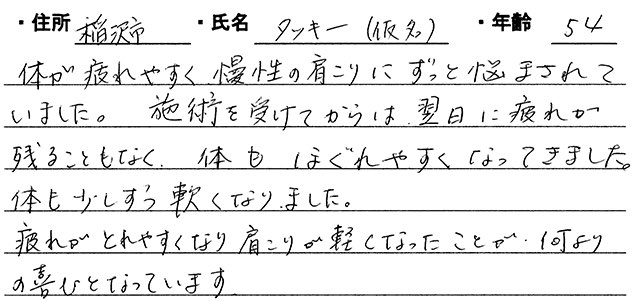 ・住所 稲沢市 ・氏名 タッキー(仮名) ・年齢 54
体が疲れやすく慢性の肩こりにずっと悩まされて
いました。 施術を受けてからは翌日に疲れが
残ることもなく、体もほぐれやすくなってきました。
体も少しずつ軟くなりました。
疲れがとれやすくなり肩こりが軽くなったことが、何より
の喜びとなっています。